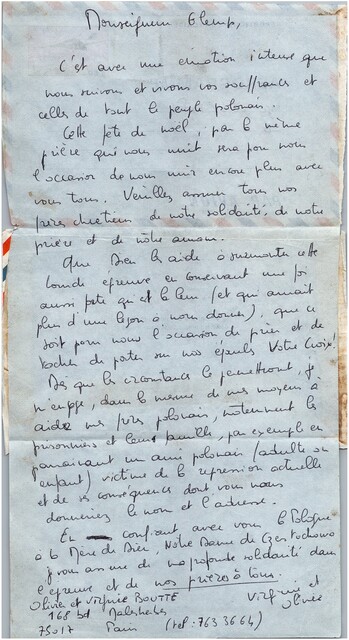 Monseigneur Glemp,
C'est avec une émotion intense que
nous suivons et vivons vos souffrances et
celles de tout le peuple polonais.
Cette fête de noël, par la même
prière qui nous unit sera pour nous
l'occasion de nous unir encore plus avec
vous tous. Veuillez assurer tous nos
frères chrétiens de notre solidarité, de notre
prière et de notre amour.
Que Dieu les aide à surmonter cette
lourde épreuve en conservant une foi
aussi forte qu'est la leur (et qui aurait
plus d'une leçon à nous donner), que ce
soit pour nous l'occasion de prier et de
tâcher de porter sur nos épaules Votre Croix!
Dès que les circonstances le permettront, je
m'engage, dans la mesure de mes moyens à
aider mes frères polonais, notamment les
prisonniers et leurs familles, par exemple en
parrainant un ami polonais (adulte ou
enfant) victime de la répression actuelle
et de ses conséquences dont vous nous
donneriez le nom et l'adresse.
En confiant avec vous la Pologne
à la Mère de Dieu, Notre Dame de Czestochowa
je vous assure de ma profonde solidarité dans
l'épreuve et de nos prières à tous.
Olivier et Virginie BOUTTE Virginie et
168 bd Malesherbes Olivier
75017 Paris (tel: 763 36 64)